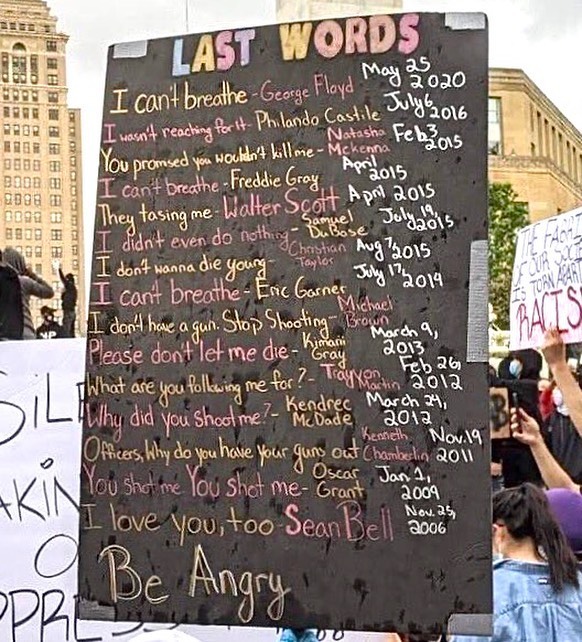 LAST WORDS
I can't breathe - George Floyd May 25 2020
I wasn't reaching for it - Philando Castile July 6, 2016
You promised you wouldn't kill me - Natasha Mckenna Feb 3 2015
I can't breathe - Freddie Gray April 2015
They tasing me - Walter Scott April 2015
I didn't even do nothing - Samuel DuBose July 19, 2015
I don't wanna die young - Christian Taylor Aug 7, 2015
I can't breathe - Eric Garner July 17, 2014
I don't have a gun. Stop Shooting - Michael Brown
Please don't let me die - Kimani Gray March 9, 2013
What are you following me for? - Trayvon Martin Feb 26, 2012
Why did you shoot me? - Kendrec McDade March 24, 2012
Officers, Why do you have your guns out Kenneth Chamberlin Nov. 19 2011
You shot me You shot me - Oscar Grant Jan 1, 2009
I love you, too - Sean Bell Nov. 25, 2006
Be Angry
THE FABRIC
OF OUR SOCI
IS TORN APAR
RACIS
SILE
AKIN
O
PPRESS